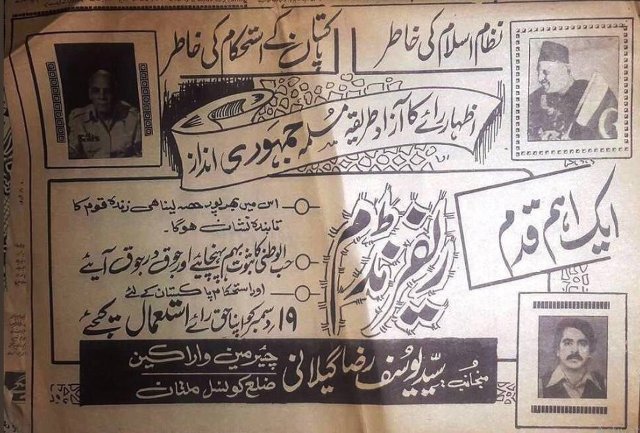 نظام اسلام کی خاطر
پاکستان کے استحکام کی خاطر
اظہار رائے کا آزاد طریقہ مسلمہ جمہوری انداز
ایک اہم قدم
ریفرنڈم
اس میں بھرپور حصہ لینا ہی زندہ قوم کا
تابندہ نشان ہوگا۔
حب الوطنی کا ثبوت بہم پہنچایئے اور جوق در جوق آیئے
اور استحکام پاکستان کے لئے
۱۹ دسمبر کو اپنا حق رائے استعمال کیجئے
منجانب:۔ سید یوسف رضا گیلانی چیئرمین و اراکین
ضلع کونسل ملتان